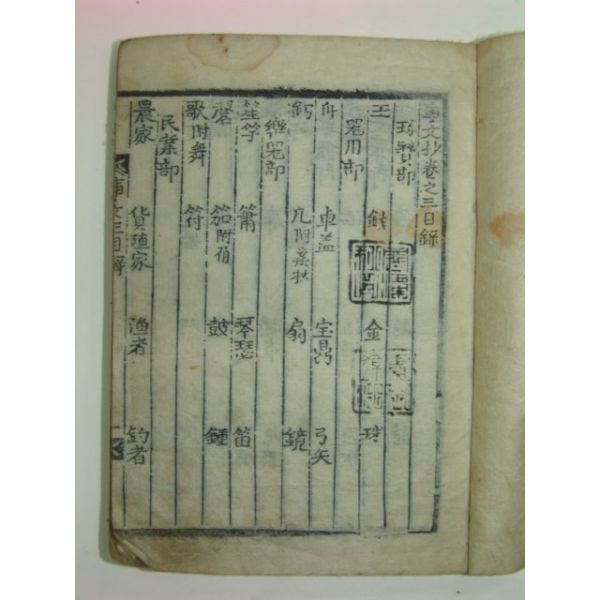 事文抄卷之三目録
珎寶部
玉 錢 金 珠
器用部
舟 車盖 宝鼎 弓矢
釼 几附案杖 扇 鏡
樂器部
笙竽 簫 琴瑟 笛
磬 笳附角 鼓 鍾
歌附舞 符
民業部
農家 貨殖家 漁者 釣者